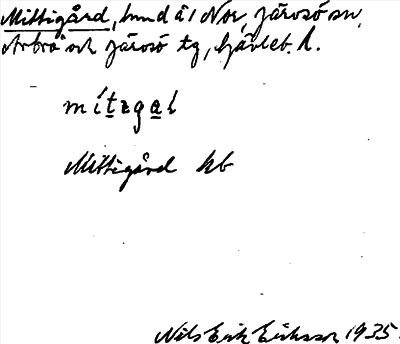 Mittigård, hmd å i Nor, Järvsö sn,
Arbrå och Järvsö tg, Gävleb. l.
Mittigård kb
Nils Erik Eriksson 1935.